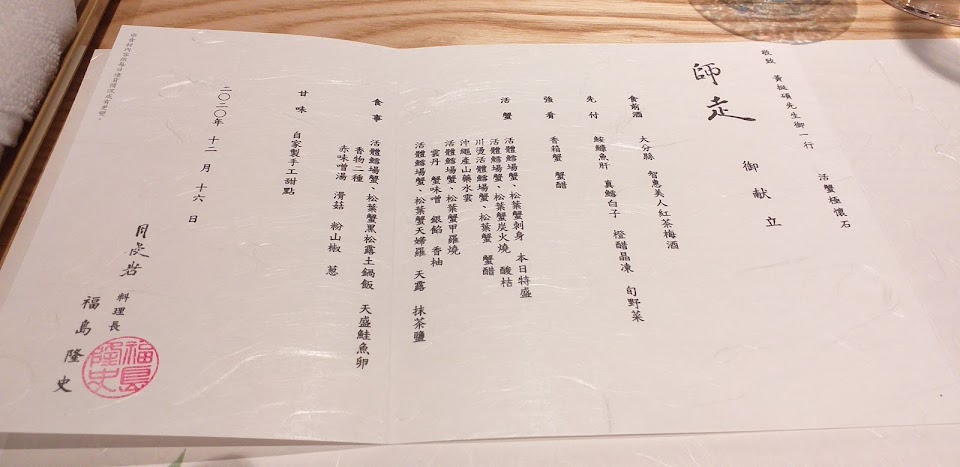 活蟹極懷石
敬致 黃挺碩先生御一行
御献立
師走
食前酒 大分縣 智惠美人紅茶梅酒
先付 鮟鱇魚肝 真鱈白子 橙醋晶凍 旬野菜
強肴 香箱蟹 蟹醋
活蟹 活體鱈場蟹、松葉蟹刺身 本日特盛
活體鱈場蟹、松葉蟹炭火燒 酸桔
川燙活體鱈場蟹、松葉蟹 蟹醋
沖繩產山藥水雲
活體鱈場蟹、松葉蟹甲羅燒
雲丹 蟹味噌 銀餡 香柚
活體鱈場蟹、松葉蟹天婦羅 天露 抹茶鹽
食事 活體鱈場蟹、松葉蟹黑松露土鍋飯 天盛鮭魚卵
香物二種
赤味噌湯 滑菇 粉山椒 蔥
甘味 自家製手工甜點
二〇二〇年 十二月 十六日
料理長
福島隆史
福島隆史
食材內容依每日進貨情況或有更變。